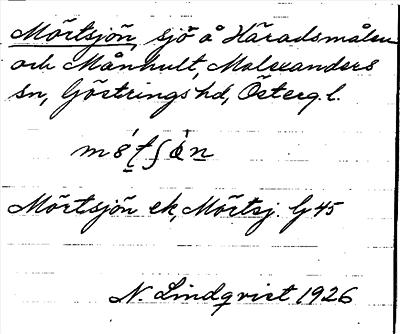 Mörtsjön, sjö å Häradsmålen
och Månhult, Malexanders
sn, Göstrings hd, Österg. l.
Mörtsjön ek, Mörtsj. G 45
N. Lindqvist 1926